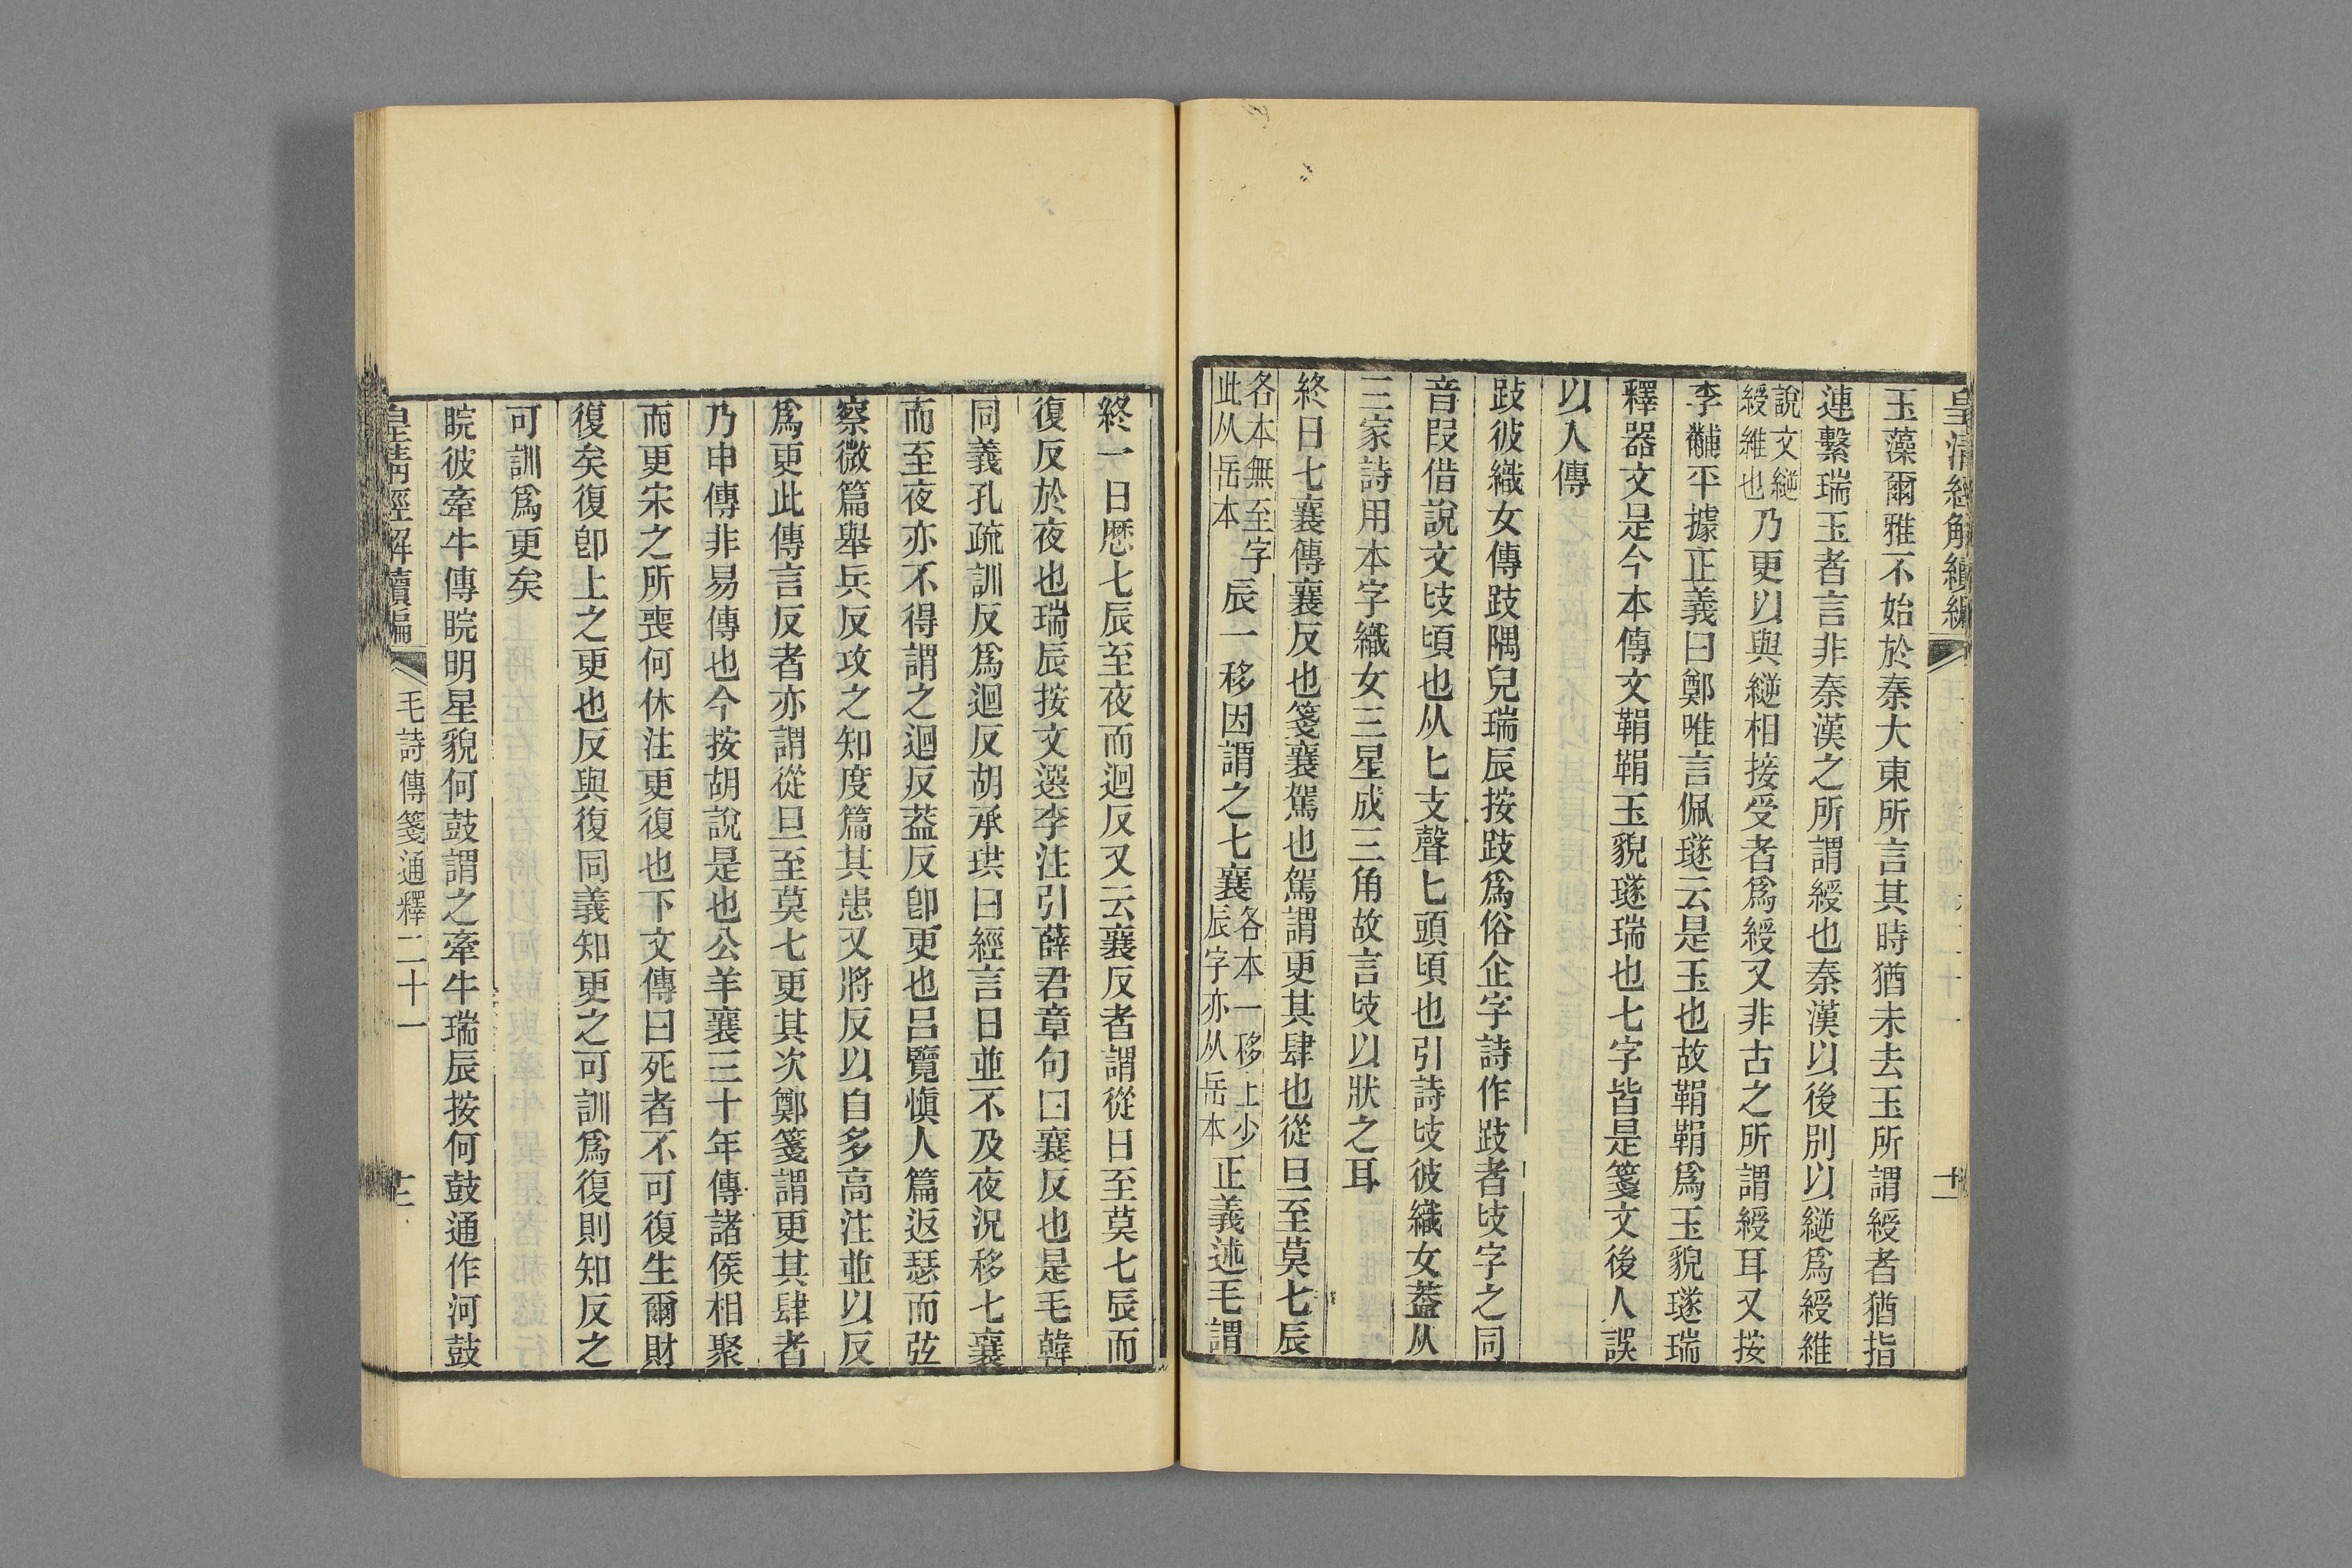 皇清經解續編
玉藻爾雅不始於秦大東所言其時猶未去玉所謂綬者猶指
連繫瑞玉者言非秦漢之所謂綬也秦漢以後別以縌爲綬維
說文縌綬維也乃更以與縌相接受者爲綬又非古之所謂綬耳又按
李黼平據正義曰鄭唯言佩璲云是玉也故鞙鞙爲玉貌璲瑞
釋器文是今本傳文鞙鞙玉貌璲瑞也七字皆是箋文後人誤
以入傳
跂彼織女傳跂隅皃瑞辰按跂爲俗企字詩作跂者𠤗字之同
音叚借說文𠤗頃也从匕支聲匕頭頃也引詩𠤗彼織女蓋从
三家詩用本字織女三星成三角故言𠤗以狀之耳
終日七襄傳襄反也箋襄駕也駕謂更其肆也從旦至莫七辰
各本無至字此从岳本辰一移因謂之七襄各本一移上少辰字亦从岳本正義述毛謂
終一日歷七辰至夜而迴反又云襄反者謂從旦至莫七辰而
復反於夜也瑞辰按文選李注引薛君章句曰襄反也是毛韓
同義孔疏訓反爲迴反胡承珙曰經言日並不及夜況移七襄
而至夜亦不得謂之迴反蓋反卽更也呂覽愼人篇返瑟而弦
察微篇舉兵反攻之知度篇其患又將反以自多高注並以反
爲更此傳言反者亦謂從旦至莫七更其次鄭箋謂更其肆者
乃申傳非易傳也今按胡說是也公羊襄三十年傳諸侯相聚
而更宋之所喪何休注更復也下文傳曰死者不可復生爾財
復矣復卽上之更也反與復同義知更之可訓爲復則知反之
可訓爲更矣
睆彼牽牛傳睆明星貌何鼓謂之牽牛瑞辰按何鼓通作河鼓
皇清經解續編 毛詩傳箋通釋二十一